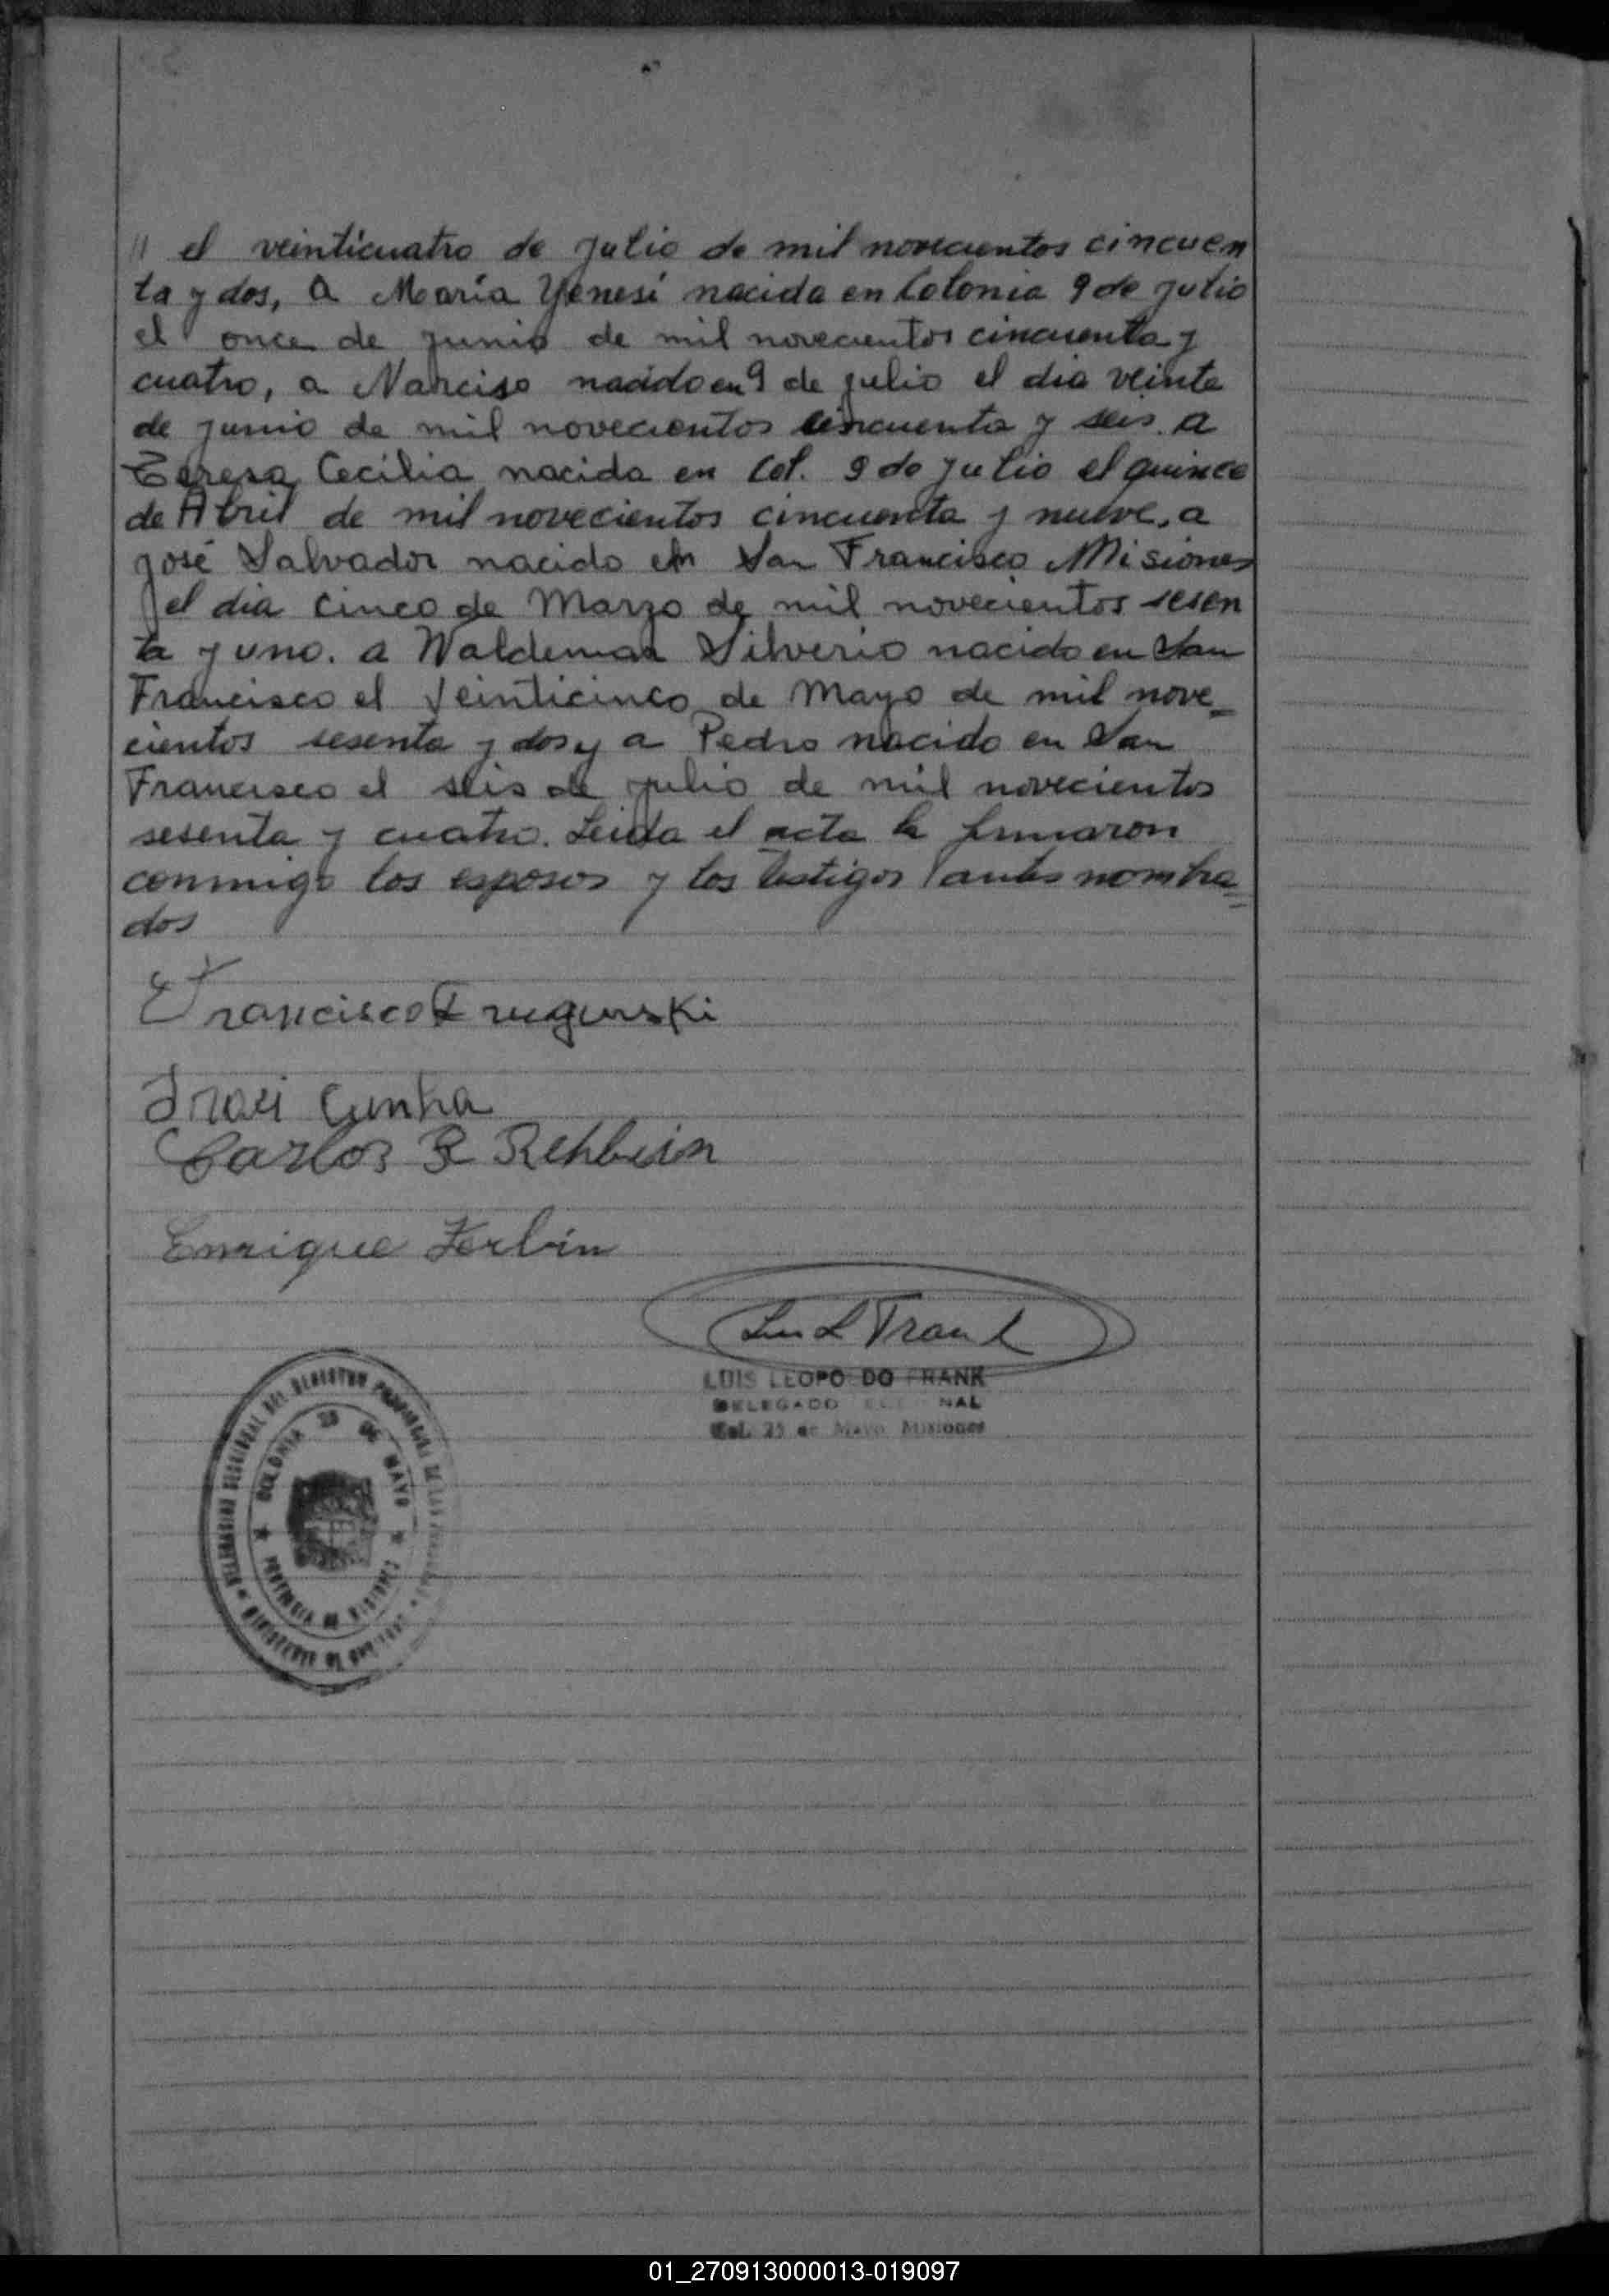 // el veinticuatro de julio de mil novecientos cincuen
ta y dos, a María Yenesí nacida en Colonia 9 de julio
el once de junio de mil novecientos cincuenta y
cuatro, a Narciso nacido en 9 de julio el dia veinte
de junio de mil novecientos cincuenta y seis. a
Teresa Cecilia nacida en Col. 9 de julio el quince
de Abril de mil novecientos cincuenta y nueve, a
José Salvador nacido en San Francisco Misiones
el dia cinco de Marzo de mil novecientos sesen
ta y uno. a Waldemar Silverio nacido en San
Francisco el Veinticinco de Mayo de mil nove_
cientos sesenta y dos y a Pedro nacido en San
Francisco el seis de julio de mil novecientos
sesenta y cuatro. Leida el acta la firmaron
conmigo los esposos y los testigos antes nombra=
dos
Francisco
Cunha
Carlos R Rehbein
Enrique Ferbin
Luis L Frank
LUIS LEOPO DO FRANK
DELEGADO NAL
Col. 25 de Mayo Misiones
DEL REGISTRO
COLONIA 25 DE MAYO
PROVINCIA DE MISIONES
MINISTERIO DE GOBIERNO
01_270913000013-019097